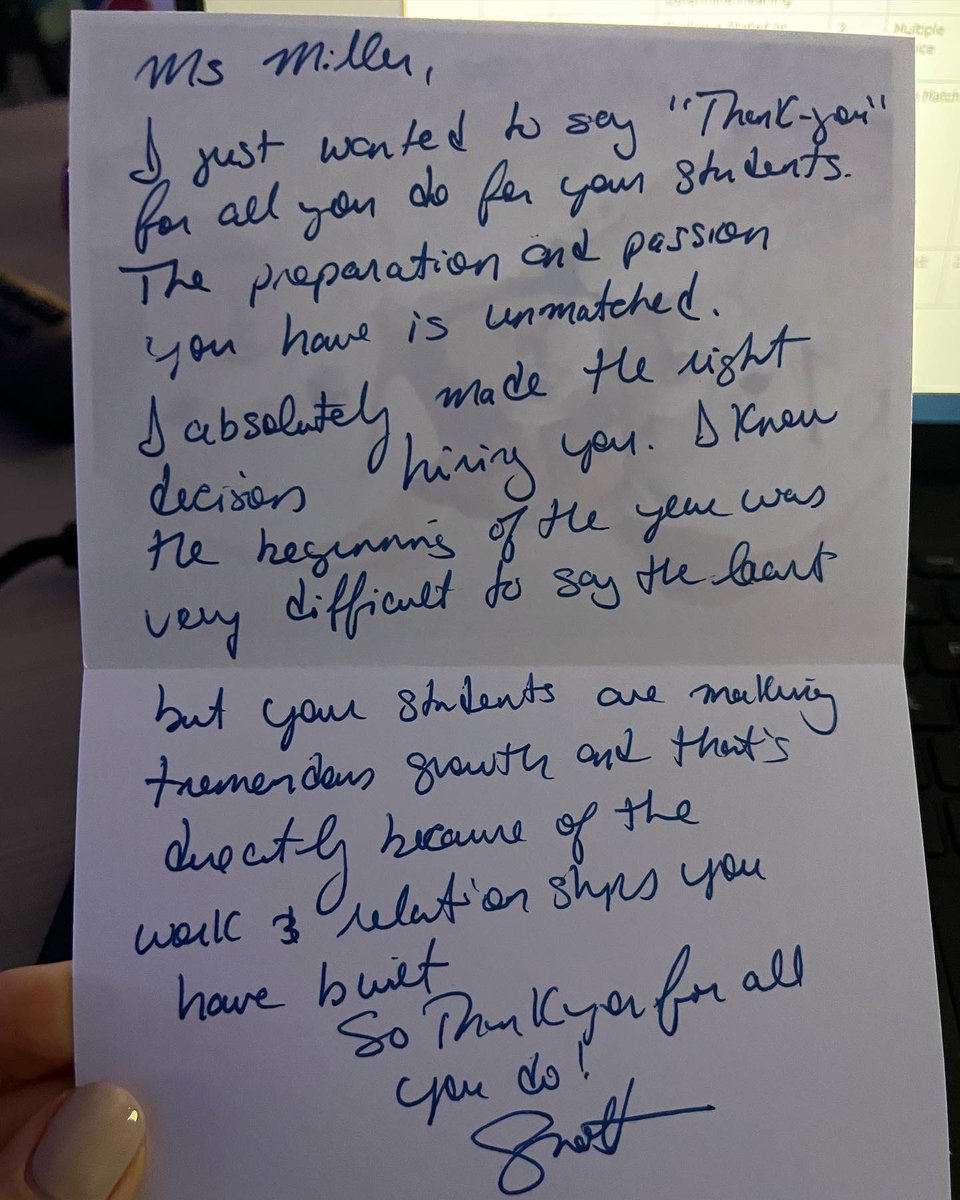 Multiple
Ms Miller,
I just wanted to say "Thank-you"
for all you do for your students.
The preparation and passion
you have is unmatched.
I absolutely made the right
decision hiring you. I know
the beginning of the year was
very difficult to say the least
but your students are making
tremendous growth and that's
directly because of the
work & relationships you
have built
So Thank you for all
you do!